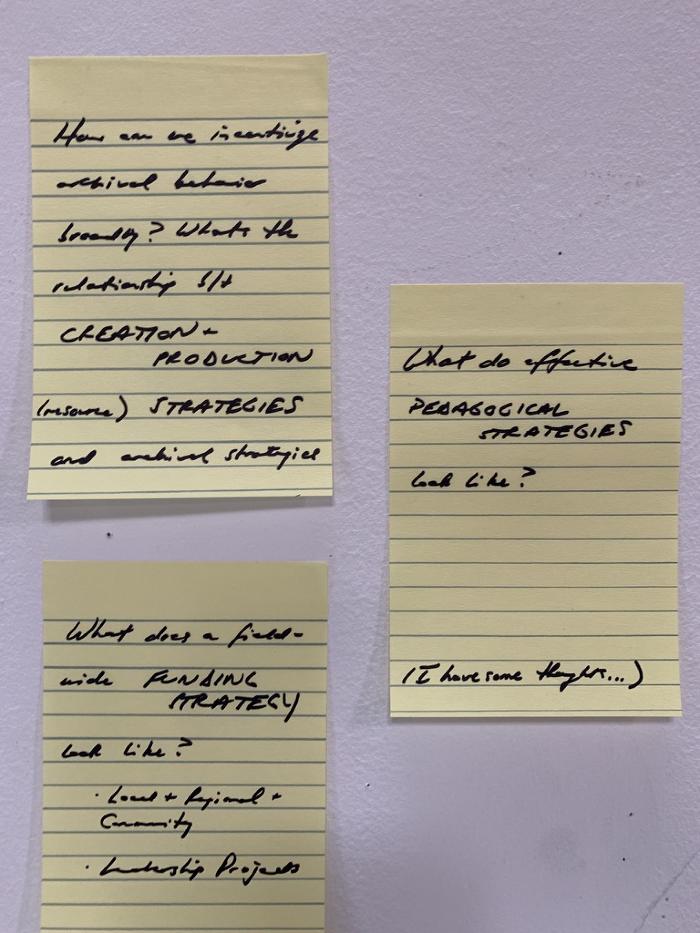 How can we incentivize
archival behavior
broadly? What's the
relationship b/t
CREATION +
PRODUCTION
(resource) STRATEGIES
and archival strategies
What do effective
PEDAGOGICAL
STRATEGIES
look like?
(I have some thoughts...)
What does a field-
wide FUNDING
STRATEGY
look like?
· Local + Regional +
Community
· Leadership Projects